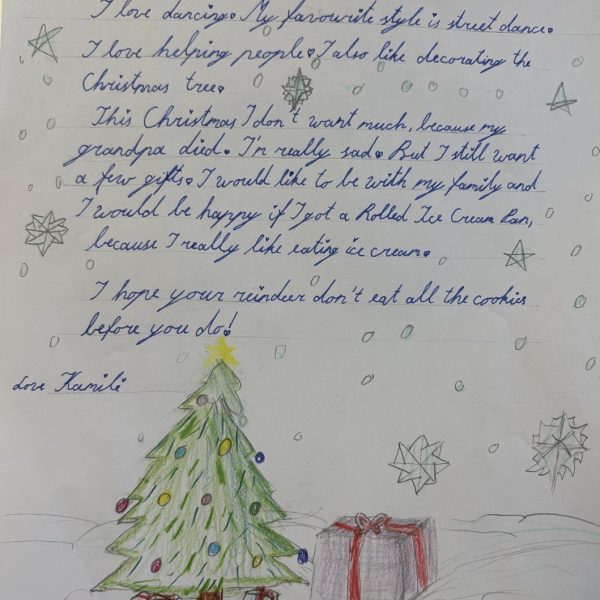 I love dancing. My favourite style is street dance.
I love helping people. I also like decorating the
Christmas tree.
This Christmas I don't want much, because my
grandpa died. I'm really sad. But I still want
a few gifts. I would like to be with my family and
I would be happy if I got a Rolled Ice Cream Pan,
because I really like eating ice cream.
I hope your reindeer don't eat all the cookies
before you do!
Love Kamilė